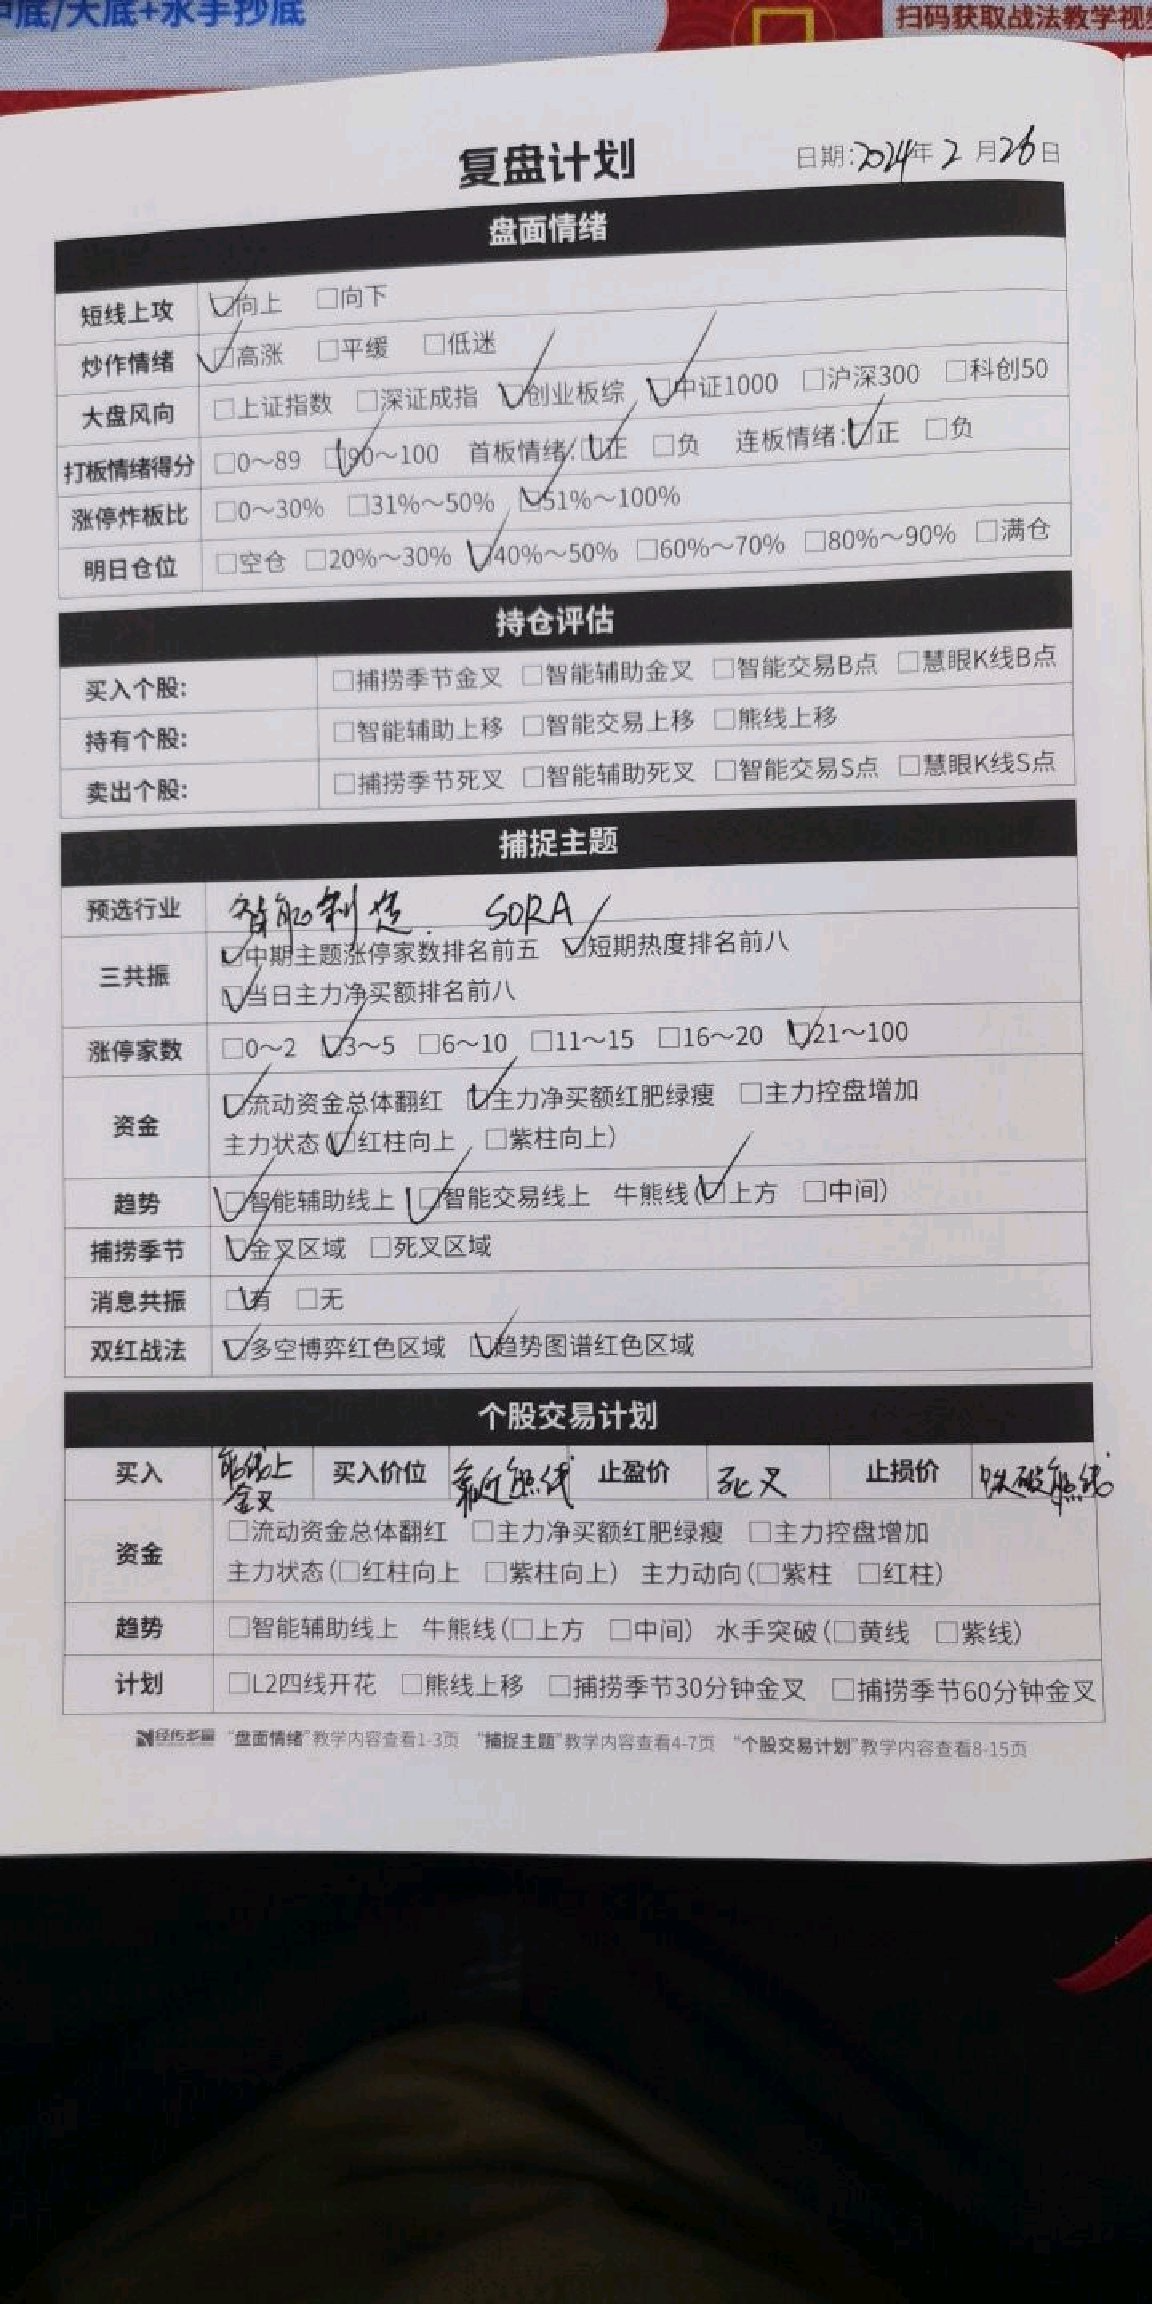 中底/大底+水手抄底
扫码获取战法教学视
复盘计划
日期:2024年2月26日
盘面情绪
短线上攻 ☑向上 □向下
炒作情绪 ☑高涨 □平缓 □低迷
大盘风向 □上证指数 □深证成指 ☑创业板综 ☑中证1000 □沪深300 □科创50
打板情绪得分 □0～89 ☑90～100 首板情绪:☑正 □负 连板情绪:☑正 □负
涨停炸板比 □0～30% □31%～50% ☑51%～100%
明日仓位 □空仓 □20%～30% ☑40%～50% □60%～70% □80%～90% □满仓
持仓评估
买入个股: □捕捞季节金叉 □智能辅助金叉 □智能交易B点 □慧眼K线B点
持有个股: □智能辅助上移 □智能交易上移 □熊线上移
卖出个股: □捕捞季节死叉 □智能辅助死叉 □智能交易S点 □慧眼K线S点
捕捉主题
预选行业 智能制造. SORA
三共振 ☑中期主题涨停家数排名前五 ☑短期热度排名前八
☑当日主力净买额排名前八
涨停家数 □0～2 ☑3～5 □6～10 □11～15 □16～20 ☑21～100
资金 ☑流动资金总体翻红 ☑主力净买额红肥绿瘦 □主力控盘增加
主力状态(☑红柱向上 □紫柱向上)
趋势 ☑智能辅助线上 ☑智能交易线上 牛熊线(☑上方 □中间)
捕捞季节 ☑金叉区域 □死叉区域
消息共振 ☑有 □无
双红战法 ☑多空博弈红色区域 ☑趋势图谱红色区域
个股交易计划
买入 熊线上金叉 买入价位 靠近熊线 止盈价 死叉 止损价 跌破熊线
资金 □流动资金总体翻红 □主力净买额红肥绿瘦 □主力控盘增加
主力状态(□红柱向上 □紫柱向上) 主力动向(□紫柱 □红柱)
趋势 □智能辅助线上 牛熊线(□上方 □中间) 水手突破(□黄线 □紫线)
计划 □L2四线开花 □熊线上移 □捕捞季节30分钟金叉 □捕捞季节60分钟金叉
经传多赢 “盘面情绪”教学内容查看1-3页 “捕捉主题”教学内容查看4-7页 “个股交易计划”教学内容查看8-15页